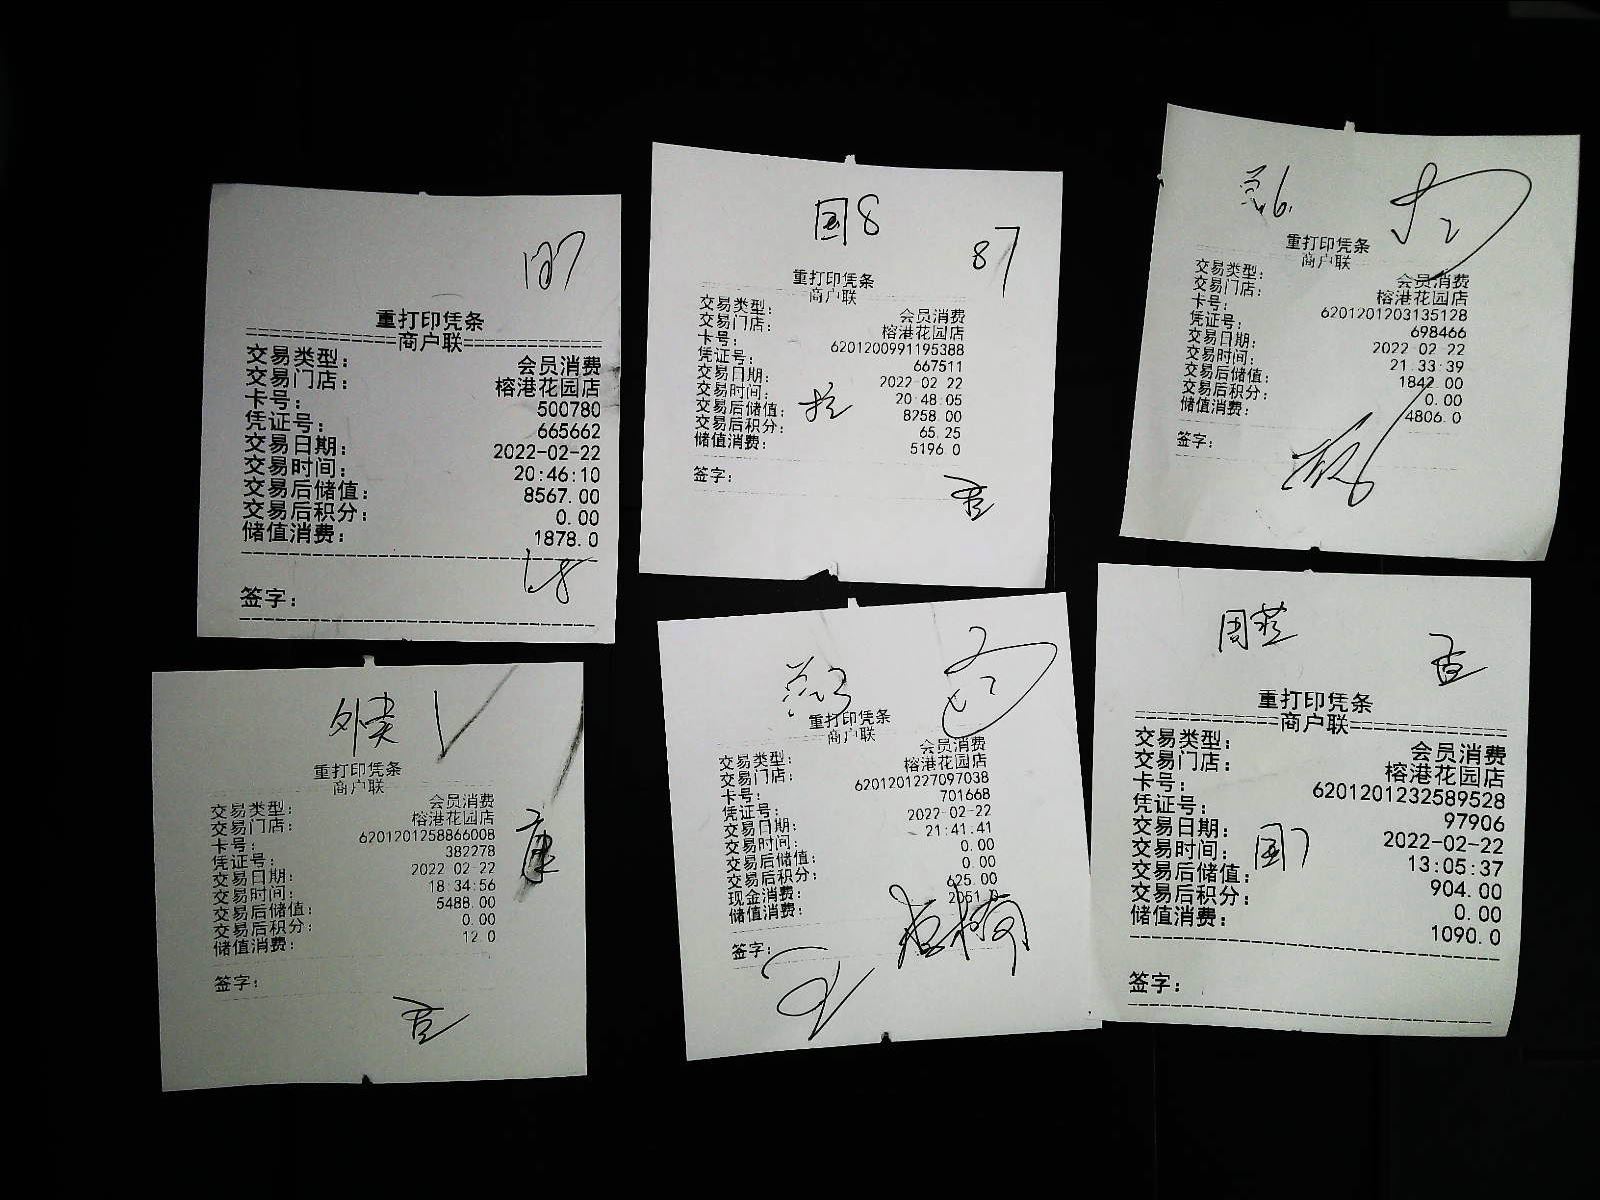 重打印凭条
商户联
交易类型: 会员消费
交易门店: 榕港花园店
卡号: 500780
凭证号: 665662
交易日期: 2022-02-22
交易时间: 20:46:10
交易后储值: 8567.00
交易后积分: 0.00
储值消费: 1878.0
签字:
国8
87
重打印凭条
商户联
交易类型: 会员消费
交易门店: 榕港花园店
卡号: 6201200991195388
凭证号: 667511
交易日期: 2022-02-22
交易时间: 20:48:05
交易后储值: 8258.00
交易后积分: 65.25
储值消费: 5196.0
签字:
重打印凭条
商户联
交易类型: 会员消费
交易门店: 榕港花园店
卡号: 6201201203135128
凭证号: 698466
交易日期: 2022-02-22
交易时间: 21:33:39
交易后储值: 1842.00
交易后积分: 0.00
储值消费: 4806.0
签字:
重打印凭条
商户联
交易类型: 会员消费
交易门店: 榕港花园店
卡号: 6201201258866008
凭证号: 382278
交易日期: 2022-02-22
交易时间: 18:34:56
交易后储值: 5488.00
交易后积分: 0.00
储值消费: 12.0
康
签字:
重打印凭条
商户联
交易类型: 会员消费
交易门店: 榕港花园店
卡号: 6201201227097038
凭证号: 701668
交易日期: 2022-02-22
交易时间: 21:41:41
交易后储值: 0.00
交易后积分: 0.00
现金消费: 625.00
储值消费: 2051.0
签字:
重打印凭条
商户联
交易类型: 会员消费
交易门店: 榕港花园店
卡号: 6201201232589528
凭证号: 97906
交易日期: 2022-02-22
交易时间: 13:05:37
国7
交易后储值: 904.00
交易后积分: 0.00
储值消费: 1090.0
签字: